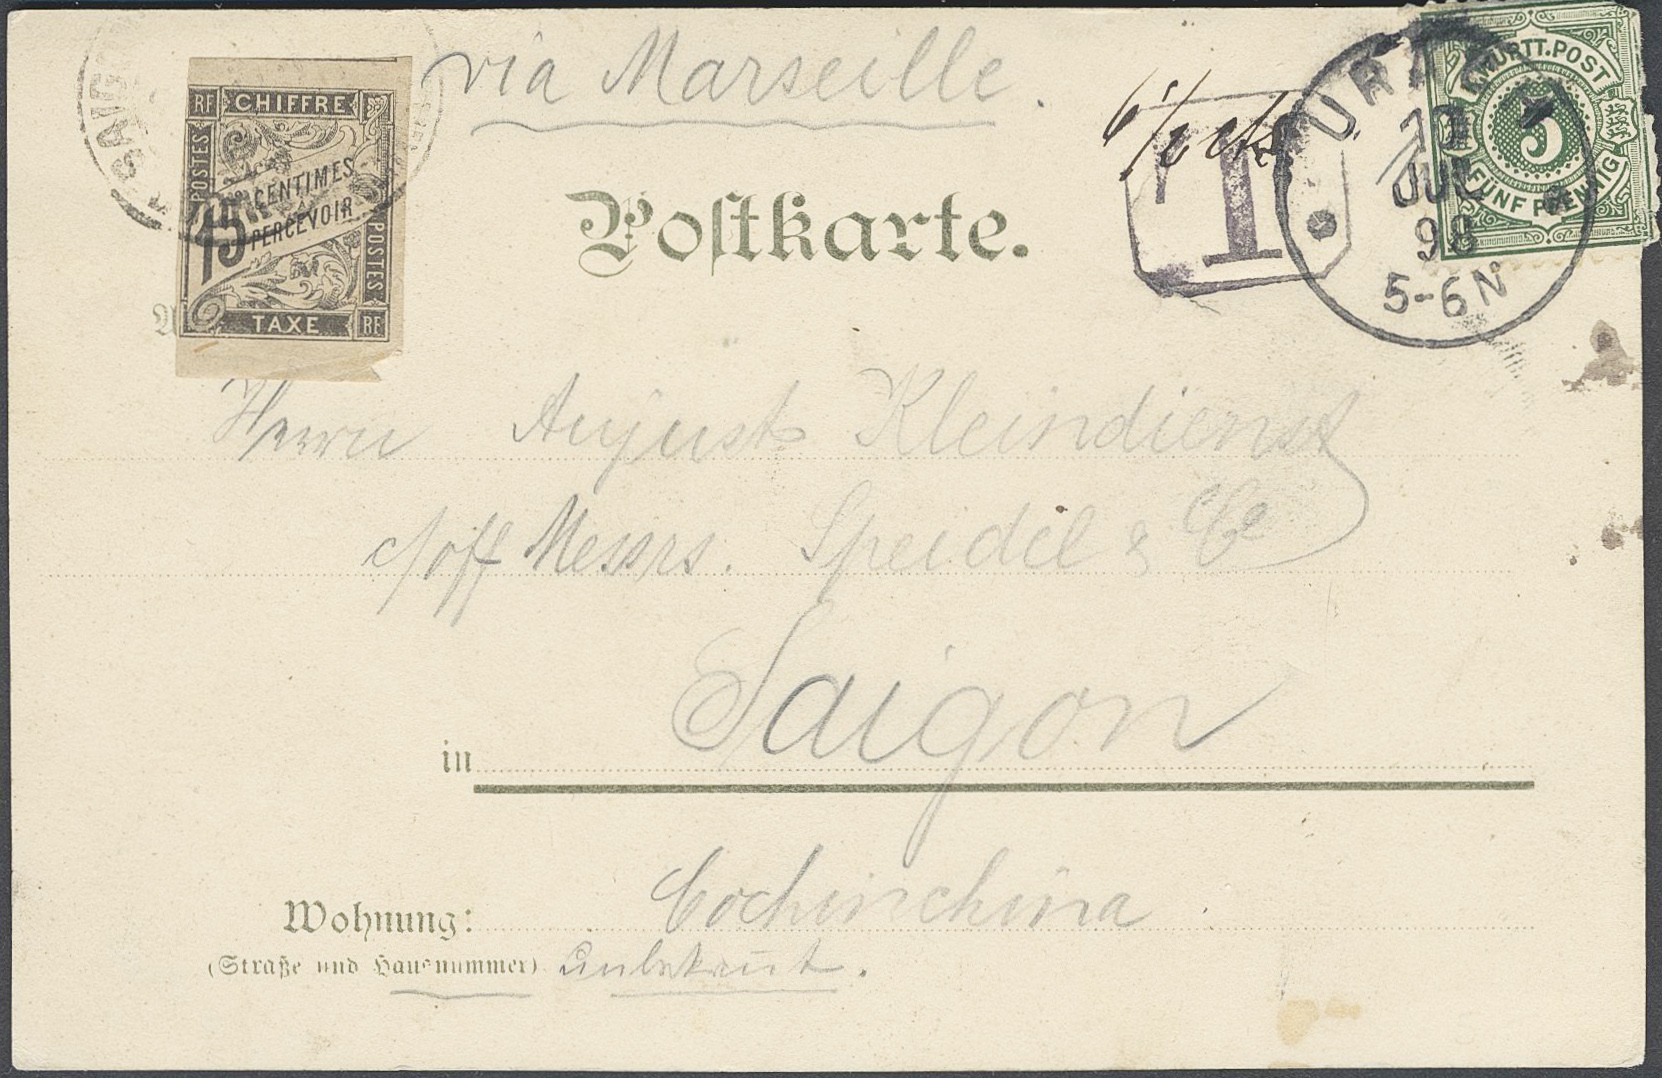 via Marseille.
SAIGON
RF CHIFFRE
POSTES
15 CENTIMES
À PERCEVOIR
POSTES
TAXE RF
T
URACH
JUL
98
5-6N
K.WÜRTT.POST
5
FÜNF PFENNIG
Postkarte.
Herrn August Kleindienst
c/off Messrs. Speidel & Co
in Saigon
Wohnung: Cochinchina
(Straße und Hausnummer) unbekannt.